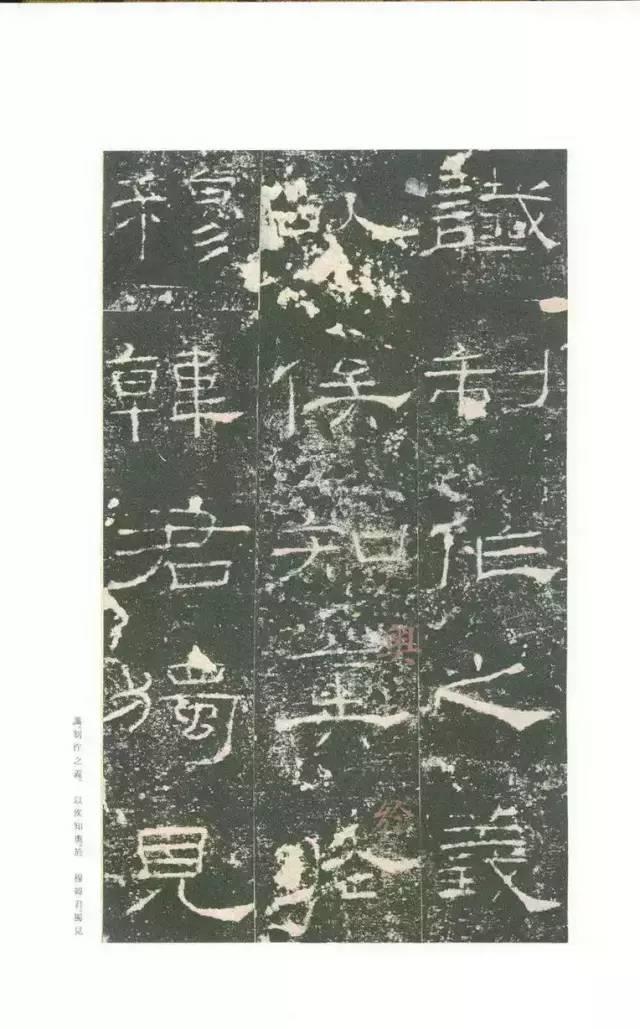 讖制作之義
以俟知奧於
穆韓君獨見
讖、制作之義。　以俟知奧。於　穆韓君、獨見